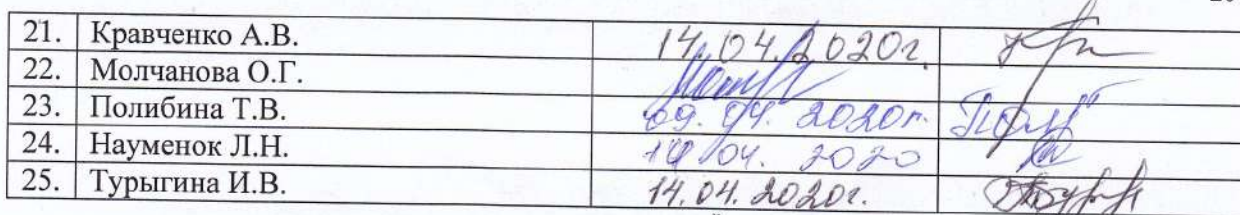 21. Кравченко А.В. 14.04.2020г.
22. Молчанова О.Г.
23. Полибина Т.В. 09.04.2020г.
24. Науменок Л.Н. 04.2020
25. Турыгина И.В. 14.04.2020г.